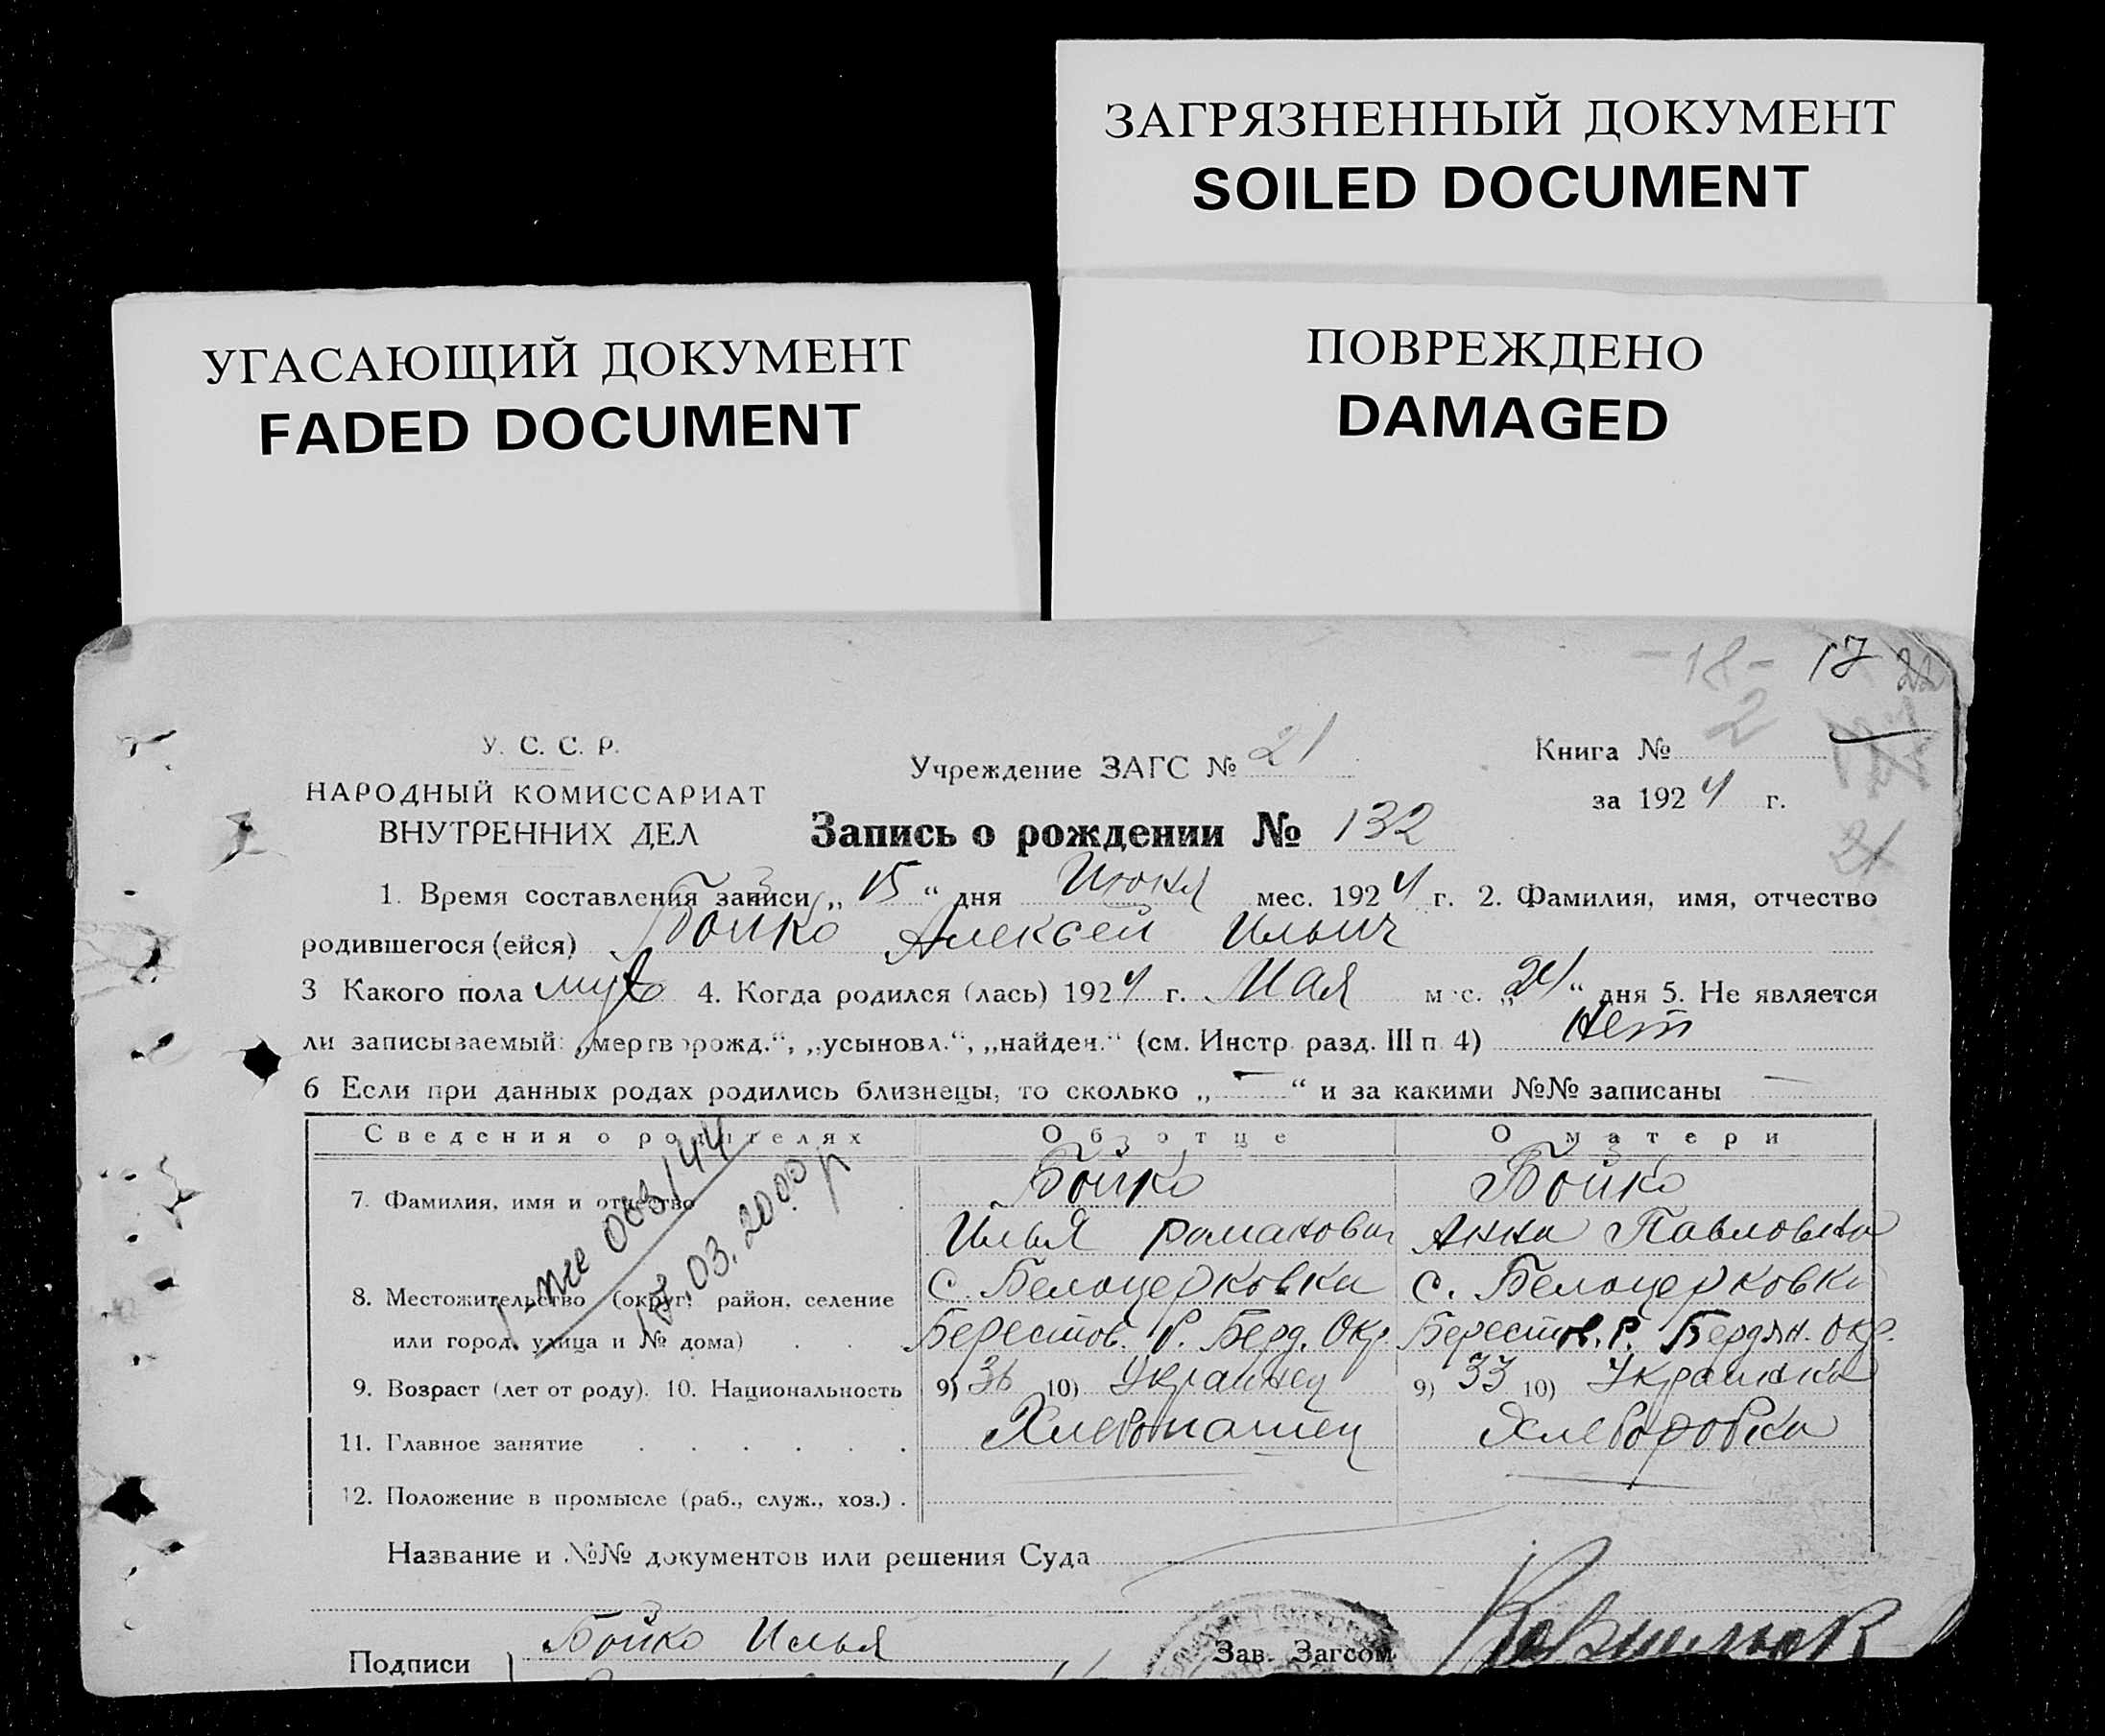 ЗАГРЯЗНЕННЫЙ ДОКУМЕНТ
SOILED DOCUMENT
УГАСАЮЩИЙ ДОКУМЕНТ
FADED DOCUMENT
ПОВРЕЖДЕНО
DAMAGED
-18- 17
У. С. С. Р.
НАРОДНЫЙ КОМИССАРИАТ
ВНУТРЕННИХ ДЕЛ
Учреждение ЗАГС № 21
Книга № 2
за 1924 г.
21
Запись о рождении № 132
1. Время составления записи „15“ дня Июня мес. 1924 г. 2. Фамилия, имя, отчество
родившегося (ейся) Бойко Алексей Ильич
3 Какого пола муж 4. Когда родился (лась) 1924 г. Мая мес. „24“ дня 5. Не является
ли записываемый: „мертворожд.“, „усыновл.“, „найден.“ (см. Инстр. разд. III п 4) Нет
6 Если при данных родах родились близнецы, то сколько „—“ и за какими №№ записаны —
Сведения о родителях Об отце О матери
7. Фамилия, имя и отчество Бойко Бойко
Илья Романович Анна Павловна
8. Местожительство (округ, район, селение с. Белоцерковка с. Белоцерковка
или город, улица и № дома) Берестов. Р. Берд. Окр. Берестов. Р. Бердян. Окр.
9. Возраст (лет от роду). 10. Национальность 9) 36 10) Украинец 9) 33 10) Украинка
11. Главное занятие Хлебопашец Хлеборобка
12. Положение в промысле (раб., служ., хоз.)
003144
03. 2000 р
Название и №№ документов или решения Суда
Подписи Бойко Илья
Зав. Загсом